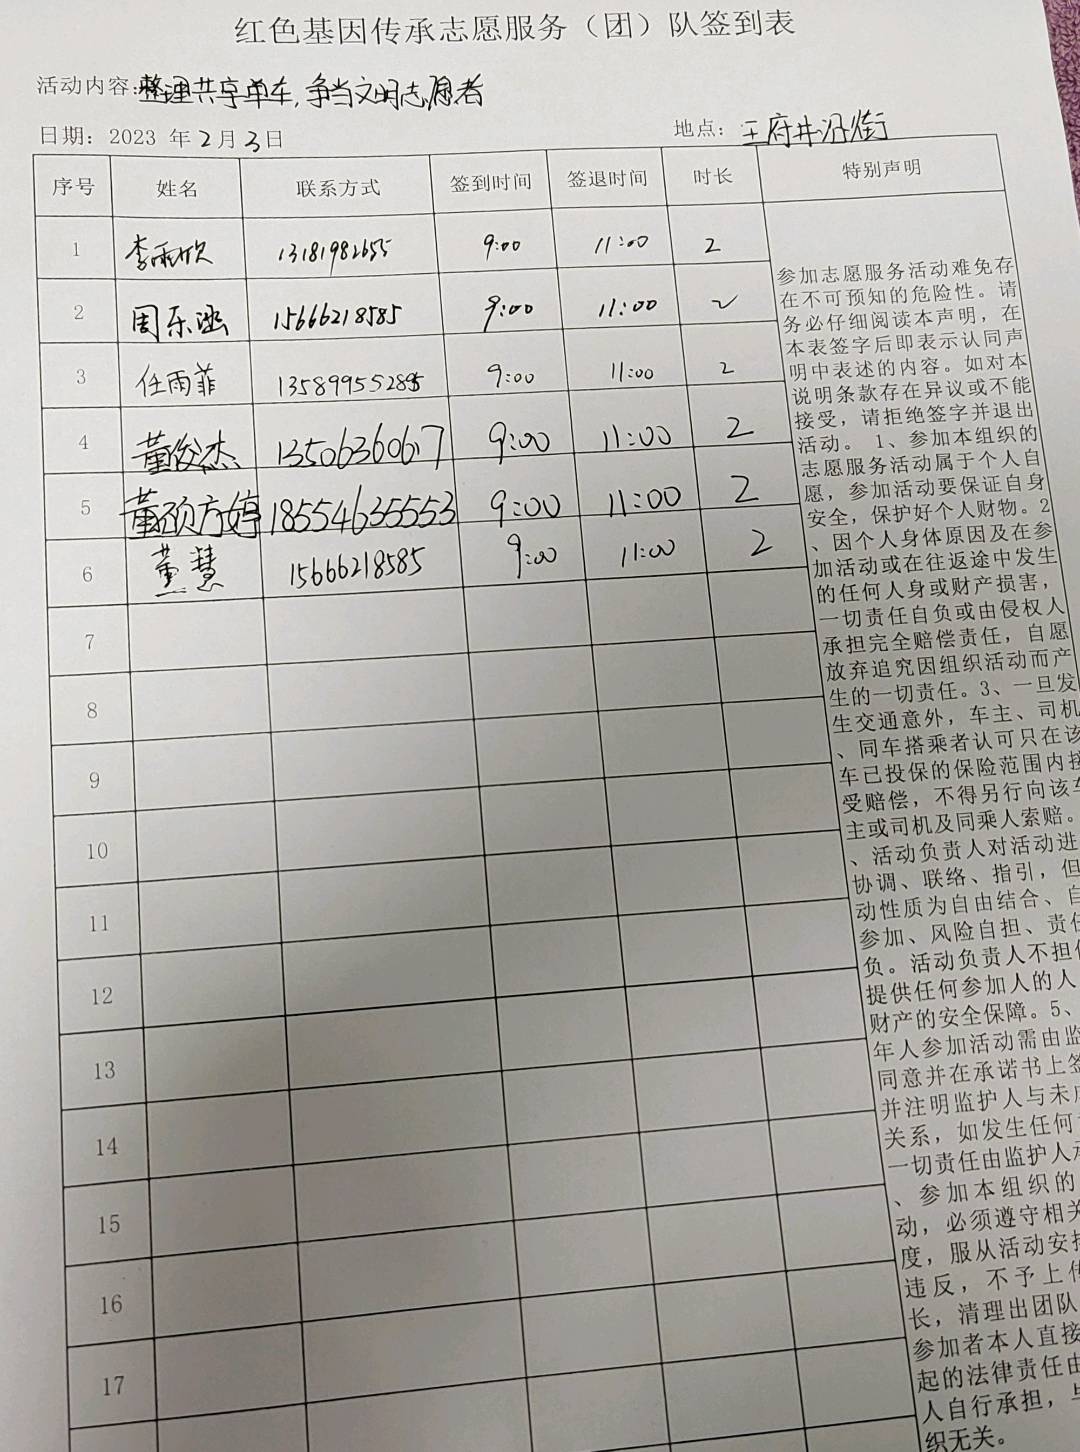 红色基因传承志愿服务（团）队签到表
活动内容：整理共享单车，争当文明志愿者
日期：2023 年2月3日 地点：王府井沿街
序号 姓名 联系方式 签到时间 签退时间 时长 特别声明
1 李雨欣 13181982655 9:00 11:00 2
2 周乐涵 15666218585 9:00 11:00 2
3 任雨菲 13589955285 9:00 11:00 2
4 董俊杰 13506360617 9:00 11:00 2
5 董颀方婷 18554635553 9:00 11:00 2
6 董慧 15666218585 9:00 11:00 2
7
8
9
10
11
12
13
14
15
16
17
参加志愿服务活动难免存
在不可预知的危险性。请
务必仔细阅读本声明，在
本表签字后即表示认同声
明中表述的内容。如对本
说明条款存在异议或不能
接受，请拒绝签字并退出
活动。 1、参加本组织的
志愿服务活动属于个人自
愿，参加活动要保证自身
安全，保护好个人财物。2
、因个人身体原因及在参
加活动或在往返途中发生
的任何人身或财产损害，
一切责任自负或由侵权人
承担完全赔偿责任，自愿
放弃追究因组织活动而产
生的一切责任。3、一旦发
生交通意外，车主、司机
、同车搭乘者认可只在该
车已投保的保险范围内接
受赔偿，不得另行向该车
主或司机及同乘人索赔。
、活动负责人对活动进
协调、联络、指引，但
动性质为自由结合、自
参加、风险自担、责任
负。活动负责人不担任
提供任何参加人的人
财产的安全保障。5、
年人参加活动需由监
同意并在承诺书上签
并注明监护人与未成
关系，如发生任何
一切责任由监护人承
、参加本组织的
动，必须遵守相关
度，服从活动安排
违反，不予上传
长，清理出团队
参加者本人直接
起的法律责任由
人自行承担，与
织无关。